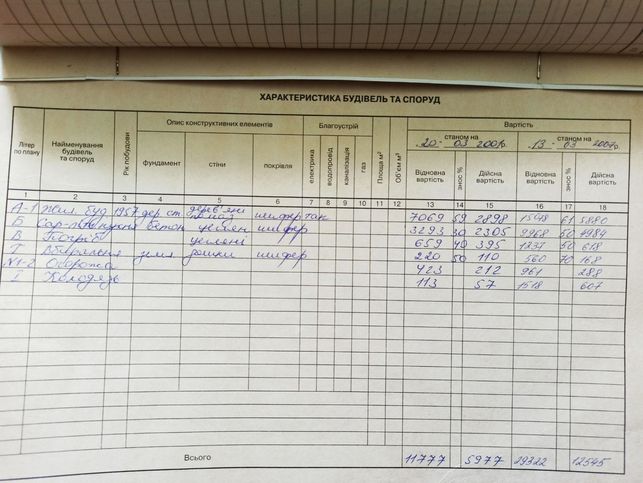 ХАРАКТЕРИСТИКА БУДІВЕЛЬ ТА СПОРУД
Літер по плану Найменування будівель та споруд Рік побудови Опис конструктивних елементів Благоустрій Площа м² Об'єм м³ Вартість
станом на 20 - 03 2001р. станом на 13 - 03 2007р.
фундамент стіни покрівля електрика водопровід каналізація газ Відновна вартість знос % Дійсна вартість Відновна вартість знос % Дійсна вартість
1 2 3 4 5 6 7 8 9 10 11 12 13 14 15 16 17 18
А-1 Жил. буд 1957 дер. ст. дерев'яні шифер так 7069 59 2898 61 5880
Б бетон шифер 3293 30 2305 9968 50 4984
В Погріб цегляні 659 40 395 1237 50 618
Г Вбиральня дошки шифер 220 50 110 560 70 168
N1-2 Огорожа 423 212 961 288
І Колодязь 113 57 1518 607
Всього 11777 5977 29322 12545